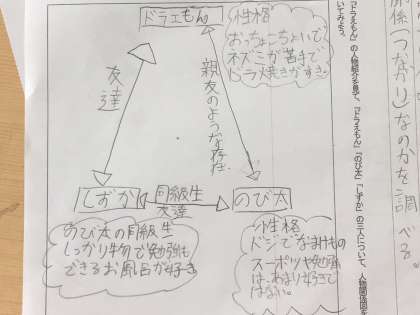 ドラえもん
性格
おっちょこちょいで
ネズミが苦手で
ドラ焼きがすき。
友達
親友のような存在
しずか
同級生
友達
のび太
のび太の同級生
しっかり物で勉強も
できるお風呂が好き。
性格
ドジでなまけもの
スポーツや勉強
は、あまり好きで
はない。
関係(つながり)なのかを調べる。
『ドラえもん』の人物紹介を見て、「ドラえもん」「のび太」「しずか」の三人について、人物関係図を
いてみよう。